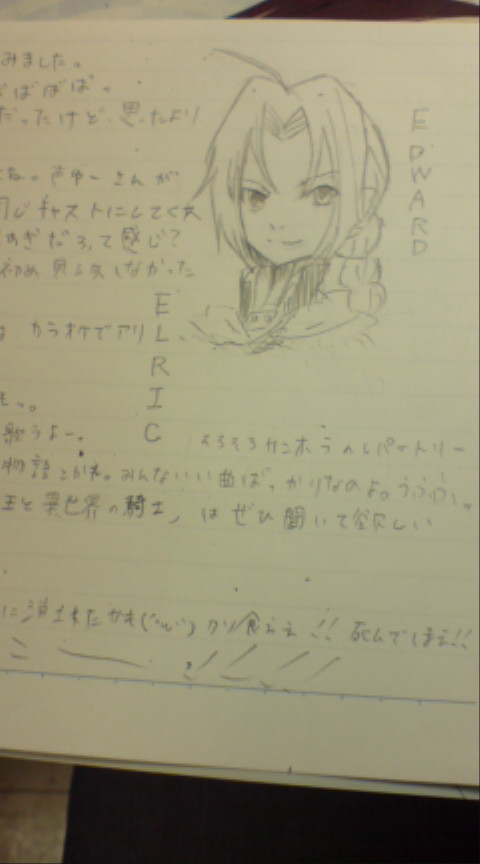 みました。
ばばば。
だったけど、思ったより
さゆーさんが
同じキャストにしてくれ
すぎだろって感じ?
初め見る気しなかった
EDWARD
ELRIC
は カラオケでアリ
も。
歌うよー。
そろそろサンホラのレパートリー
物語とかね。みんないい曲ばっかりなのよ。うふふふ。
王と異世界の騎士」はぜひ聞いて欲しい
に消されたかも クソ食らえ!! 死んでしまえ!!